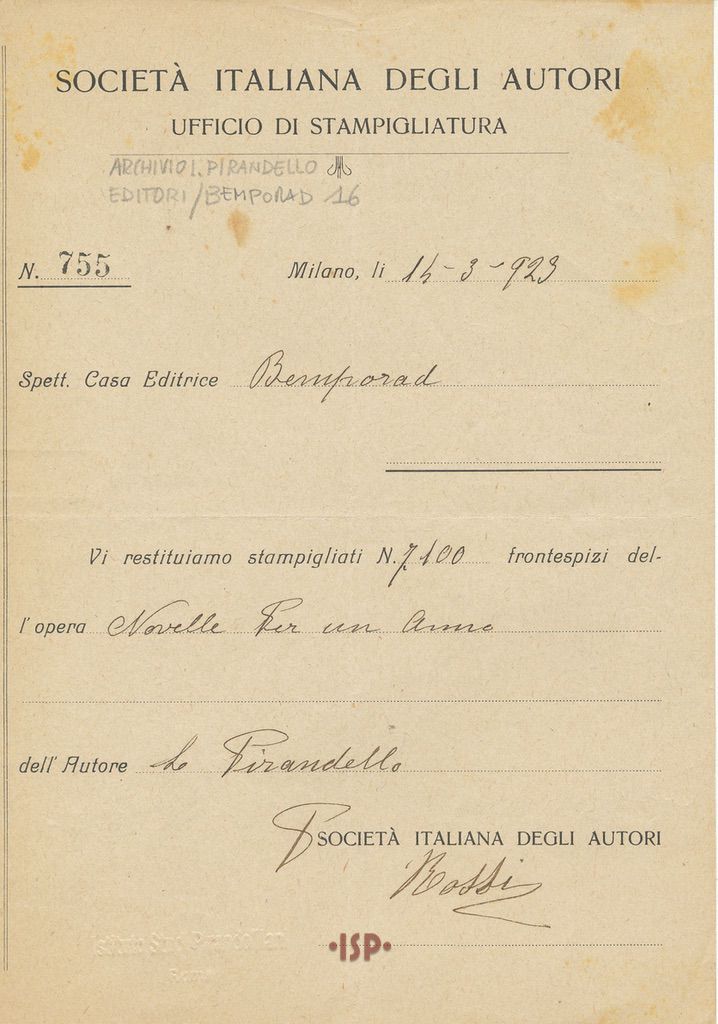 SOCIETÀ ITALIANA DEGLI AUTORI
UFFICIO DI STAMPIGLIATURA
ARCHIVIO L. PIRANDELLO
EDITORI/BEMPORAD 16
N. 755 Milano, li 14-3-923
Spett. Casa Editrice Bemporad
Vi restituiamo stampigliati N. 7100 frontespizi del-
l'opera Novelle Per un Anno
dell'Autore L Pirandello
P SOCIETÀ ITALIANA DEGLI AUTORI
Rossi
•ISP•